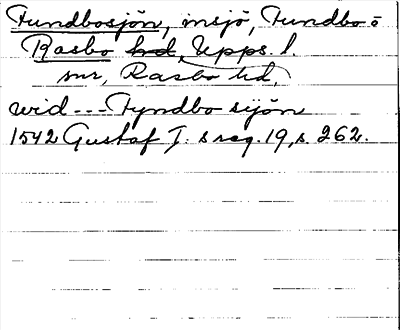 Fundbosjön, insjö, Fundbo ö
Rasbo hd, Upps. l.
snr, Rasbo hd,
wid --- Fyndbo sijön
1542 Gustaf I:s reg. 19, s. 262.